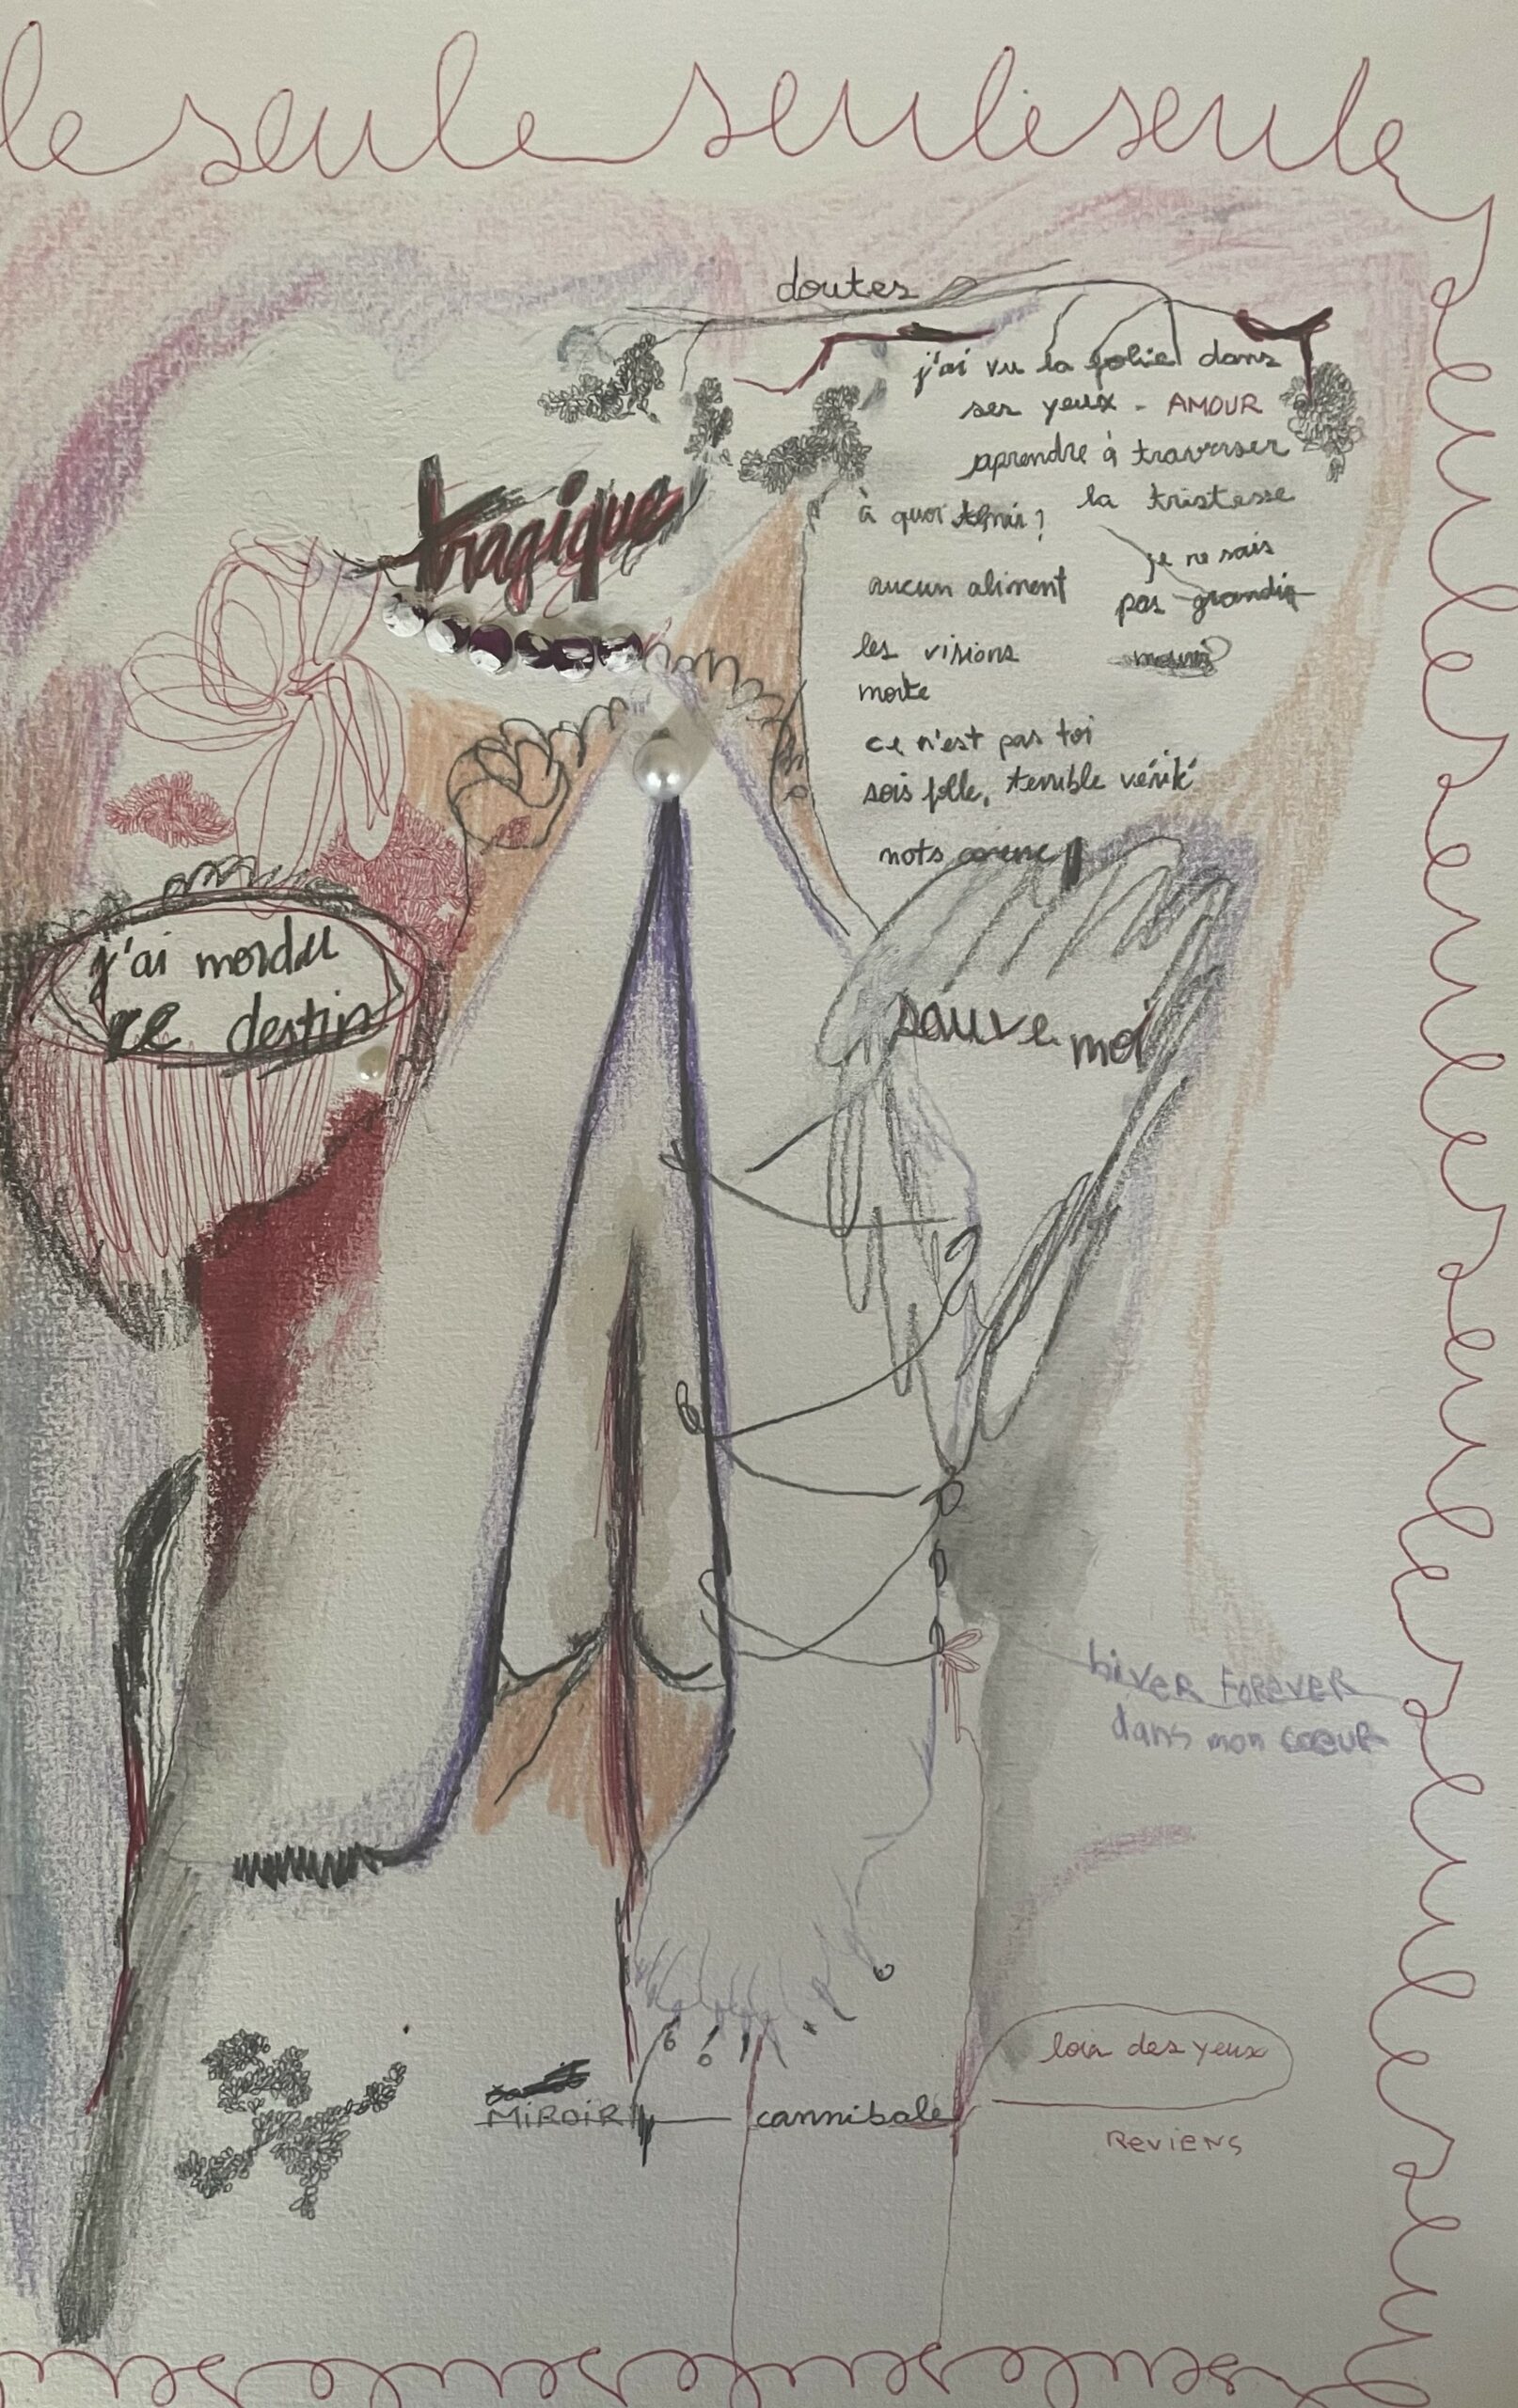 le seule seule seule
doutes
j'ai vu la folie dans
ses yeux - AMOUR
aprendre à traverser
la tristesse
à quoi tenir ?
je ne sais
pas grandir
aucun aliment
les visions
mourir
morte
ce n'est pas toi
sois folle, terrible vérité
mots
tragique
j'ai mordu
ce destin
sauve moi
hiver FOREVER
dans mon coeur
loin des yeux
MiROiR — cannibale
REViENS